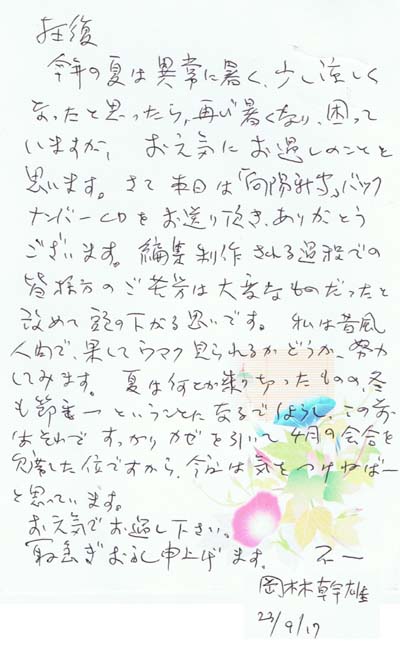 拝復
今年の夏は異常に暑く、少し涼しく
なったと思ったら、再び暑くなり、困って
いますが、お元気にお過しのことと
思います。さて本日は「向陽」バック
ナンバーCDをお送り頂き、ありがとう
ございます。編集制作される過程での
皆様方のご苦労は大変なものだったと
改めて頭の下がる思いです。私は昔風
人間で、果してウマク見られるかどうか、努力
してみます。夏は何とか乗り切ったものの、冬
も節電ーということになるでしょうし、この前
はそれですっかりカゼを引いて4月の会合を
欠席した位ですから、今冬は気をつけねばー
と思っています。
お元気でお過し下さい。
取急ぎお礼申上げます。 不一
岡林幹雄
23/9/17